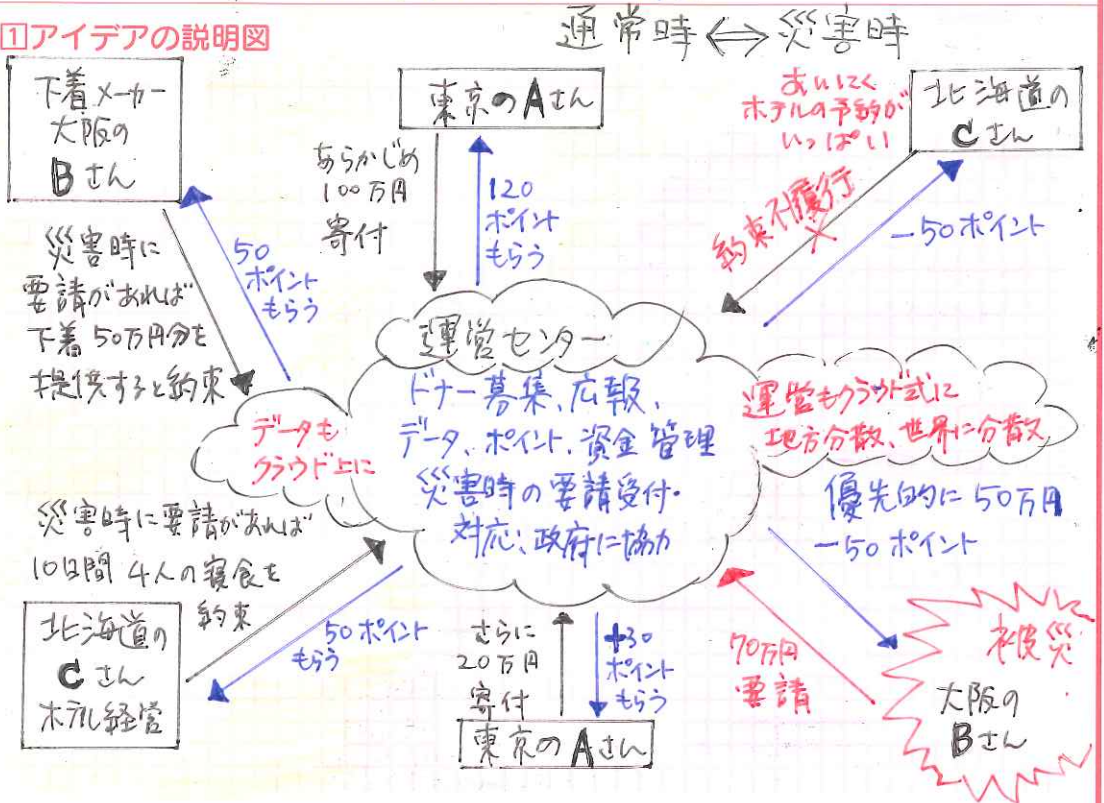 1アイデアの説明図
通常時⇔災害時
下着メーカー
大阪の
Bさん
東京のAさん
あいにく
ホテルの予約が
いっぱい
北海道の
Cさん
あらかじめ
100万円
寄付
120
ポイント
もらう
約束不履行
×
-50ポイント
災害時に
要請があれば
下着50万円分を
提供すると約束
50
ポイント
もらう
運営センター
ドナー募集、広報、
データ、ポイント、資金管理
災害時の要請受付・
対応、政府に協力
データも
クラウド上に
運営もクラウド式に
地方分散、世界に分散
災害時に要請があれば
10日間4人の寝食を
約束
北海道の
Cさん
ホテル経営
50ポイント
もらう
さらに
20万円
寄付
+30
ポイント
もらう
東京のAさん
優先的に50万円
-50ポイント
70万円
要請
被災
大阪の
Bさん